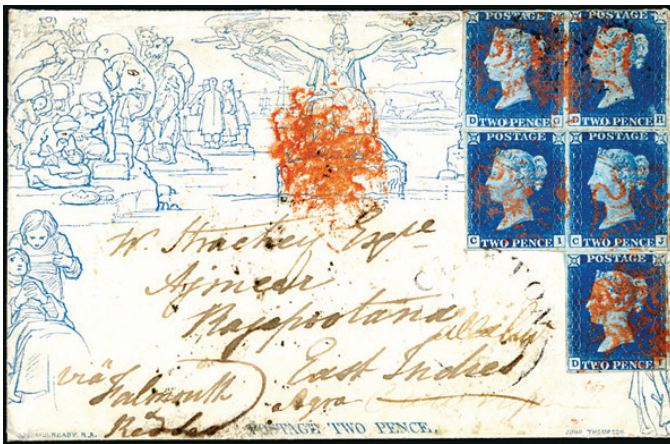 POSTAGE
TWO PENCE
D G
POSTAGE
TWO PENCE
D H
POSTAGE
TWO PENCE
C I
POSTAGE
TWO PENCE
C
POSTAGE
TWO PENCE
D
W. Strachey Esqre
Ajmeer
Rajapootana
East Indies
via
Falmouth
Agra
POSTAGE TWO PENCE.
MULREADY. R.A.
JOHN THOMPSON